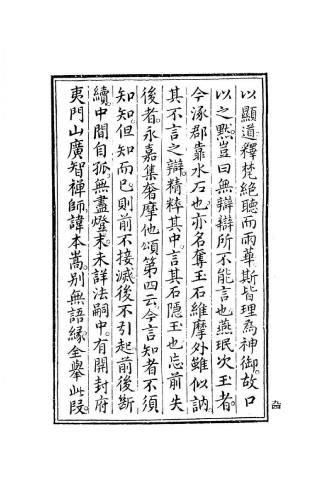 以顯道釋梵絕聽而雨華斯皆理為神御故口
以之默豈曰無辯辯所不能言也燕珉次玉者
今涿郡靠水石也亦名奪玉石維摩外雖似訥
其不言之辯精粹其中言其石隱玉也忘前失
後者永嘉集奢摩他頌第四云今言知者不須
知知但知而已則前不接滅後不引起前後斷
續中間自孤無盡燈末未詳法嗣中有開封府
夷門山廣智禪師諱本嵩別無語緣全舉此段